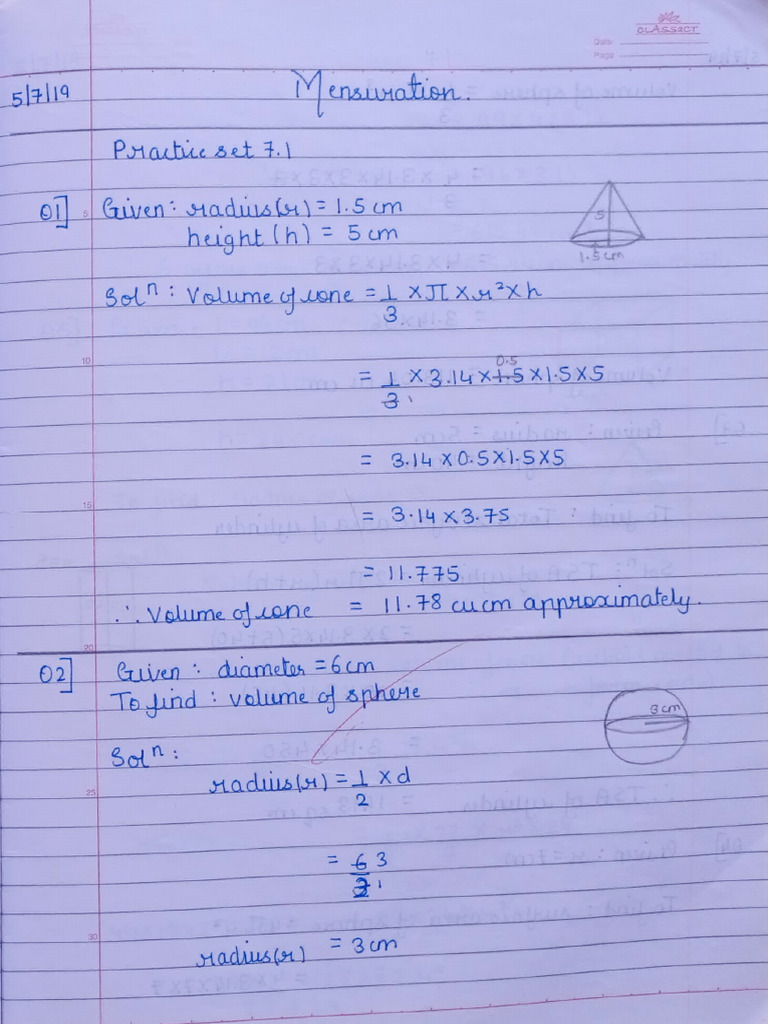 CLASSECT
Date
Page
5/7/19
Mensuration.
Practice set 7.1
01] Given: radius(r) = 1.5 cm
height (h) = 5 cm
5
1.5 cm
Solⁿ: Volume of cone = 1/3 × π × r² × h
= 1/3 × 3.14 × 1.5 0.5 × 1.5 × 5
= 3.14 × 0.5 × 1.5 × 5
= 3.14 × 3.75
= 11.775
∴ Volume of cone = 11.78 cu cm approximately.
02] Given: diameter = 6cm
To find: volume of sphere
3 cm
Solⁿ:
radius(r) = 1/2 × d
= 6/2 3 1
radius(r) = 3 cm
5
10
15
20
25
30